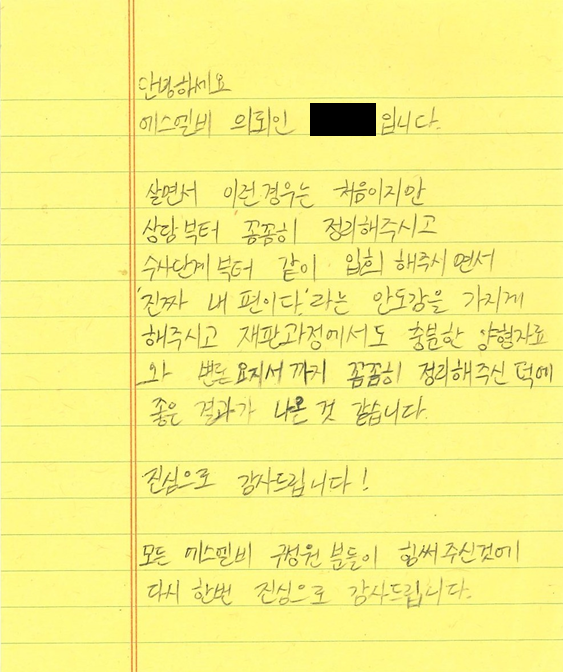 안녕하세요
에스엘비 의뢰인 입니다.
살면서 이런경우는 처음이지만
상담부터 꼼꼼히 정리해주시고
수사단계부터 같이 입회 해주시면서
'진짜 내 편이다.'라는 안도감을 가지게
해주시고 재판과정에서도 충분한 양형자료
와 변론요지서까지 꼼꼼히 정리해주신 덕에
좋은 결과가 나온 것 같습니다.
진심으로 감사드립니다!
모든 에스엘비 구성원분들이 힘써주신것에
다시 한번 진심으로 감사드립니다.